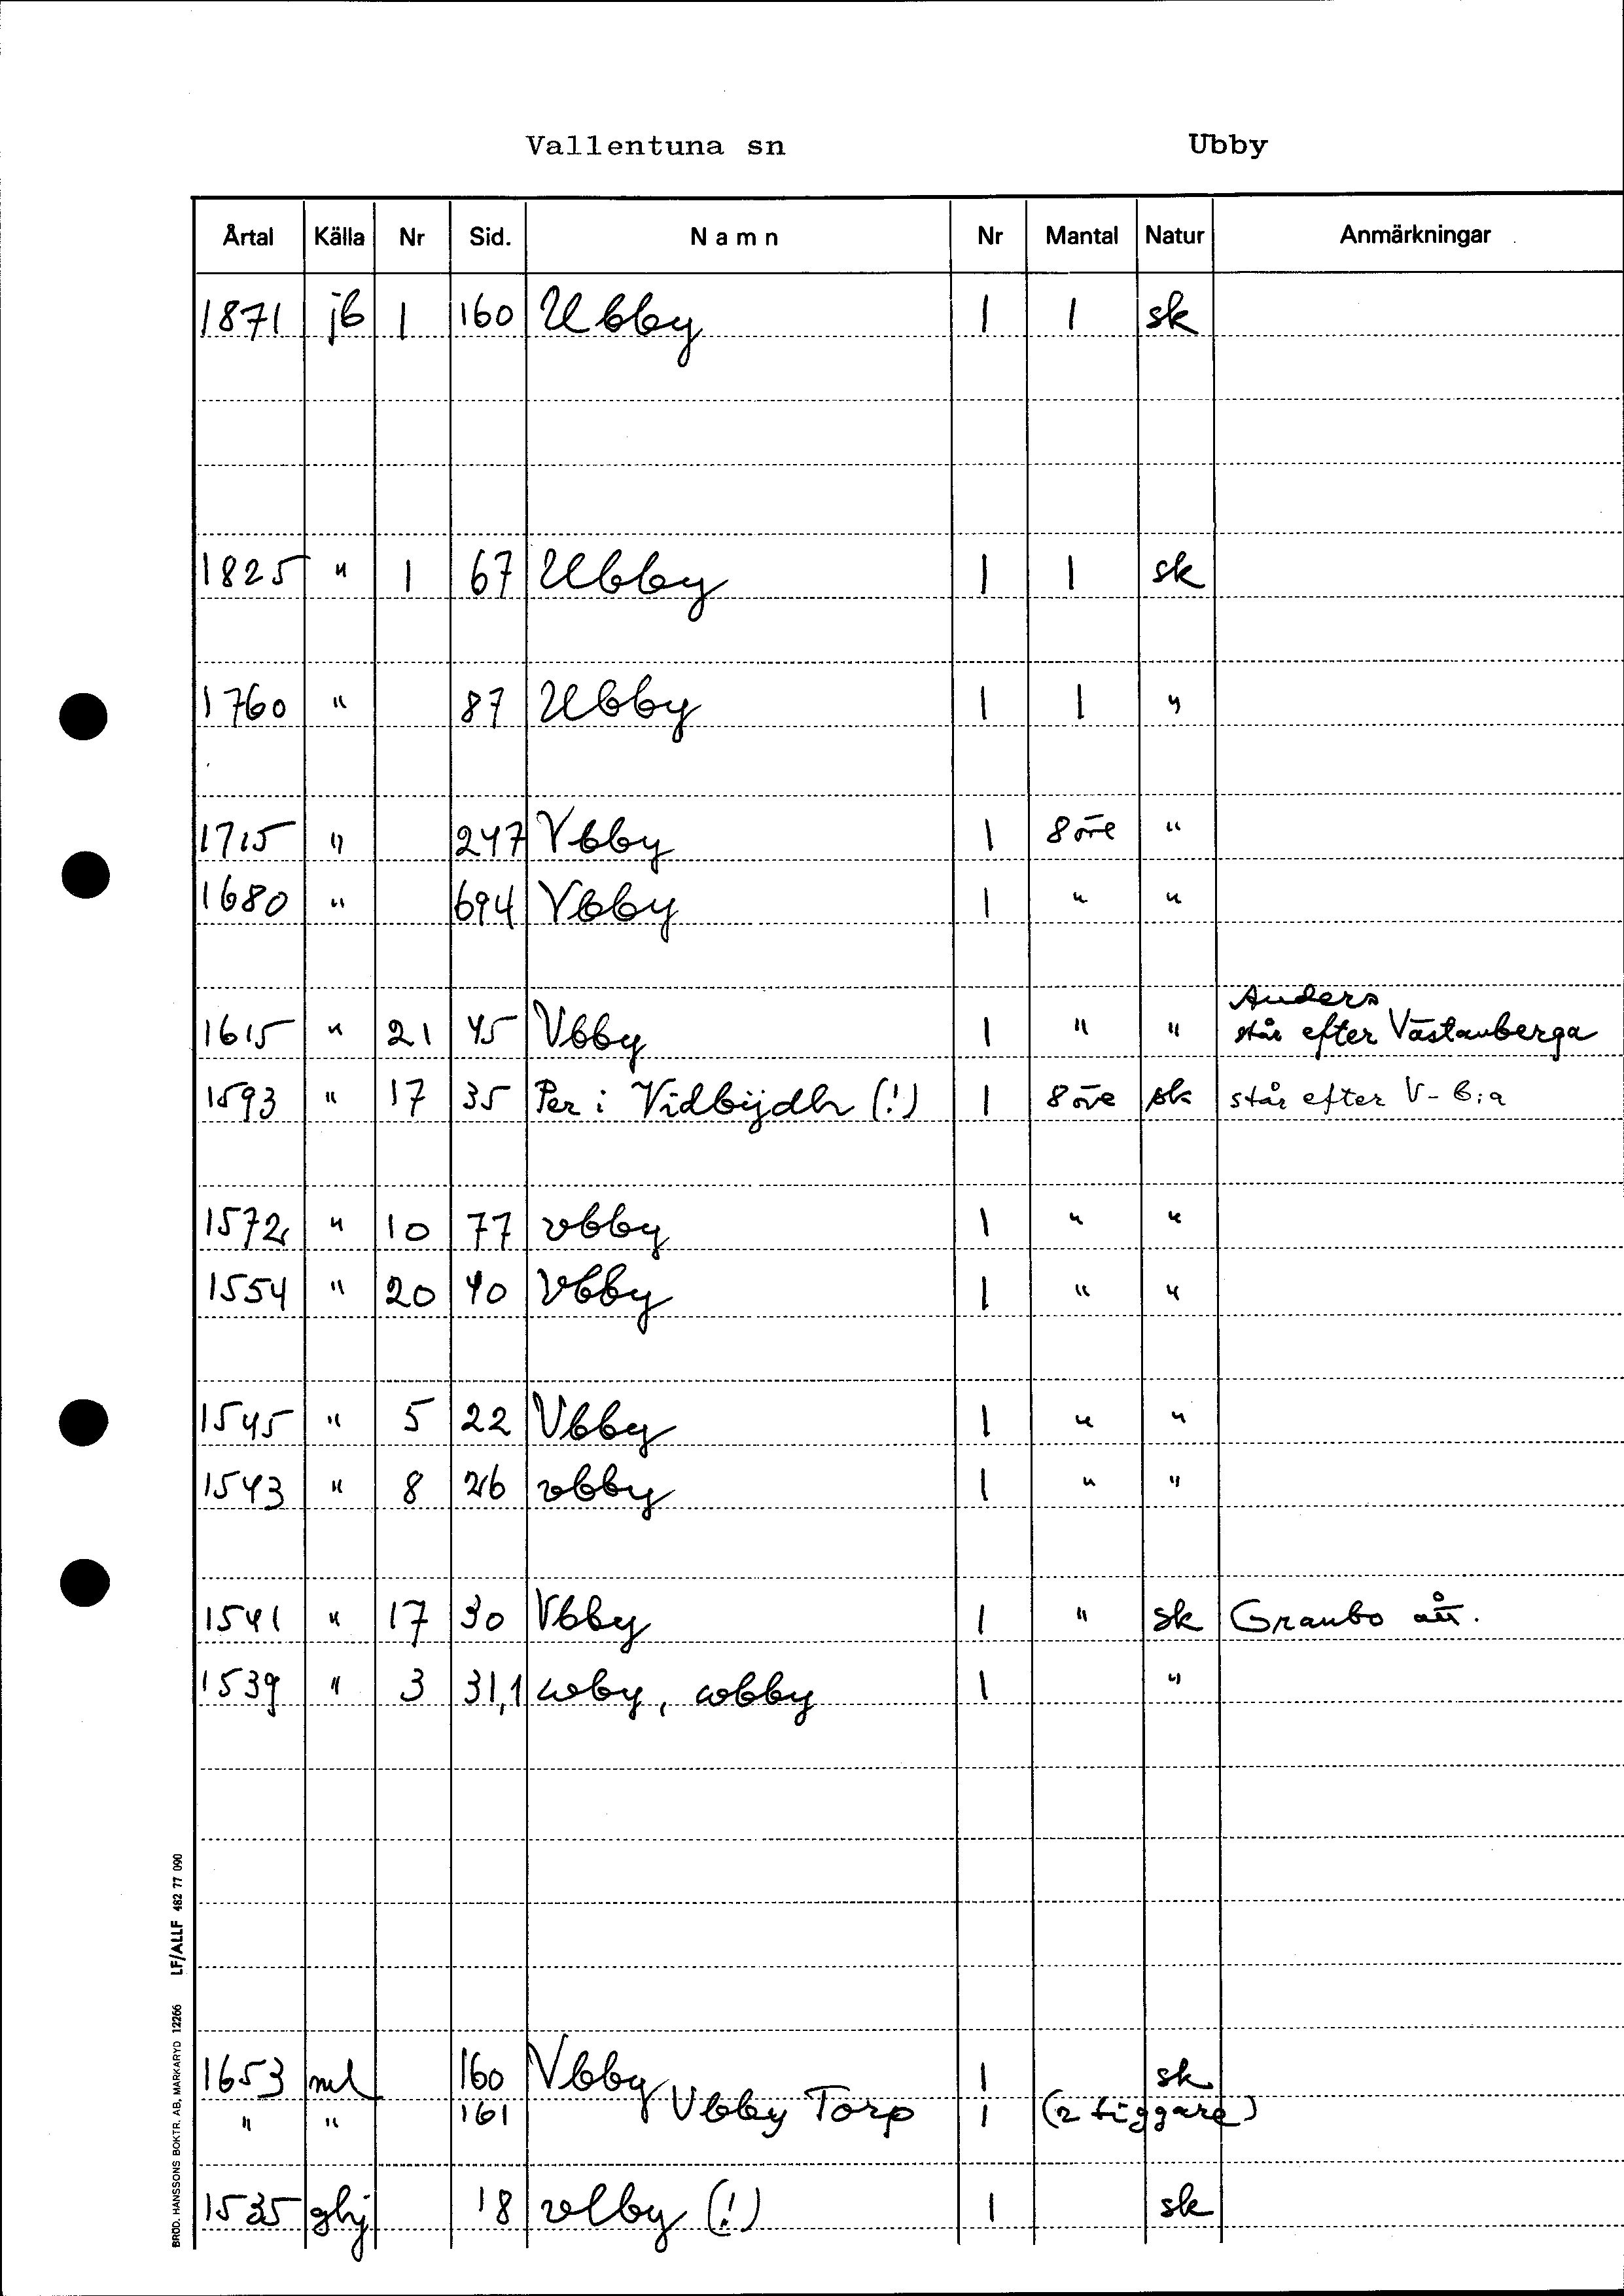 Vallentuna sn Ubby
Årtal Källa Nr Sid. Namn Nr Mantal Natur Anmärkningar
1871 jb 1 160 Ubby 1 1 sk
1825 " 1 67 Ubby 1 1 sk
1760 " 87 Ubby 1 1 "
1715 " 247 Vbby 1 8 öre "
1680 " 694 Vbby 1 " "
Anders
1615 " 21 45 Vbby 1 " " står efter Västanberga
1593 " 17 35 Per i Vidbijdh (!) 1 8 öre sk står efter V-b:a
1572 " 10 77 vbby 1 " "
1554 " 20 40 Vbby 1 " "
1545 " 5 22 Vbby 1 " "
1543 " 8 26 vbby 1 " "
1541 " 17 30 Vbby 1 " sk Granbo
1539 " 3 31,1 woby, wbby 1 "
1653 ml 160 Vbby 1 sk
" " 161 Vbby Torp 1 (2 tiggare)
1535 ghj 18 vlby (!) 1 sk
BRÖD. HANSSONS BOKTR. AB, MARKARYD 12266 LF/ALLF 482 77 090